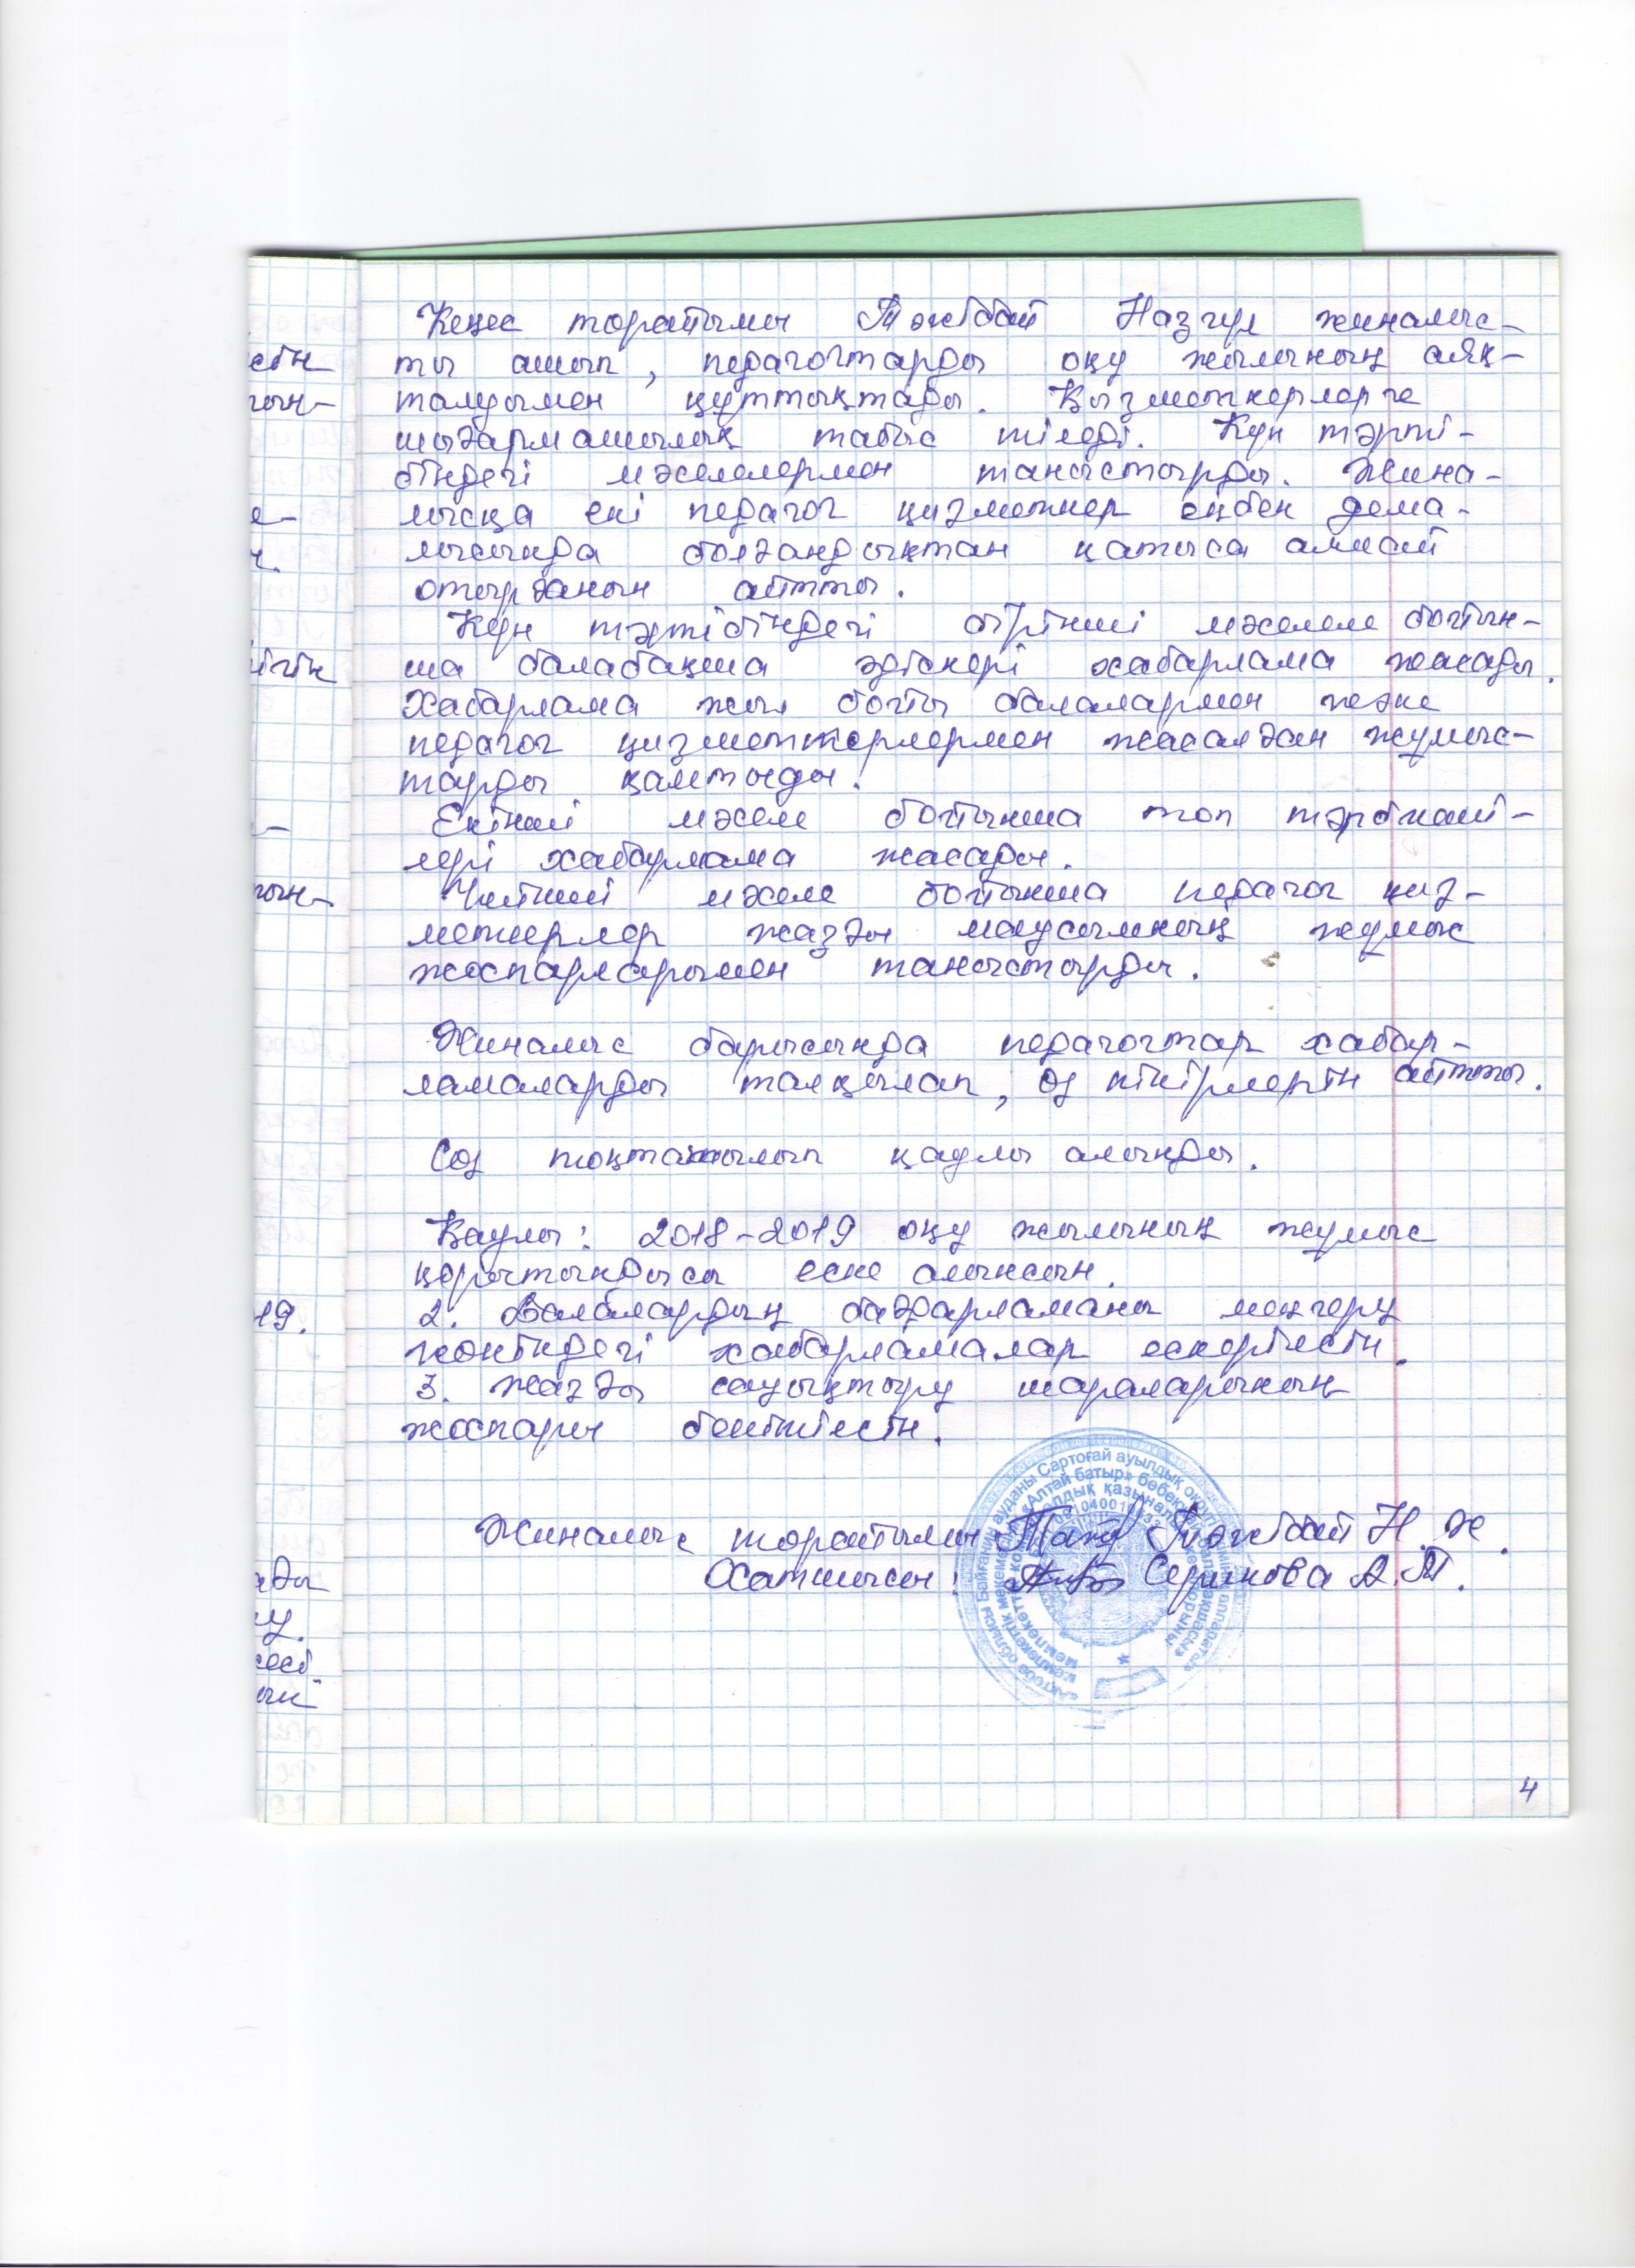 Кеңес төрайымы Тәжібай Назгүл жиналыс-
ты ашып, педагогтарды оқу жылының аяқ-
талуымен құттықтады. Қызметкерлерге
шығармашылық табыс тіледі. Күн тәрті-
біндегі мәселелермен таныстырды. Жина-
лысқа екі педагог қызметкер еңбек дема-
лысында болғандықтан қатыса алмай
отырғанын айтты.
Күн тәртібіндегі бірінші мәселе бойын-
ша балабақша әдіскері хабарлама жасады.
Хабарлама жыл бойы балалармен және
педагог қызметкерлермен жасалған жұмыс-
тарды қамтыды.
Екінші мәселе бойынша топ тәрбиеші-
лері хабарлама жасады.
Үшінші мәселе бойынша педагог қыз-
меткерлер жазғы маусымның жұмыс
жоспарларымен таныстырды.
Жиналыс барысында педагогтар хабар-
ламаларды талқылап, өз пікірлерін айтты.
Сөз тоқтатылып қаулы алынды.
Қаулы: 2018-2019 оқу жылының жұмыс
қорытындысы еске алынсын.
19.
2. Балалардың бағдарламаны меңгеру
жөніндегі хабарламалар ескерілсін.
3. Жазғы сауықтыру шараларының
жоспары бекітілсін.
Жиналыс төрайымы Тәжібай Н. Ж.
Хатшысы: Серикова А. Т.
Байғанин ауданы Сартоғай ауылдық
«Алтай батыр»
4